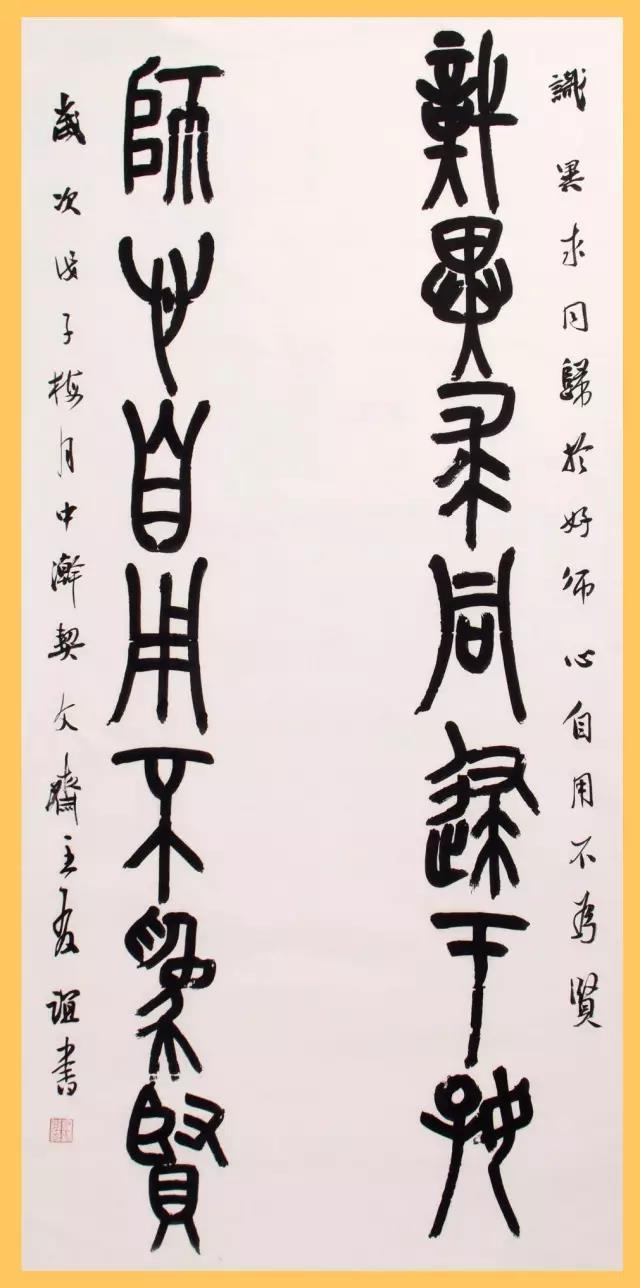 識異求同歸於好師心自用不為賢
識異求同歸于好
師心自用不為賢
歲次戊子梅月中澣契文齋主友誼書